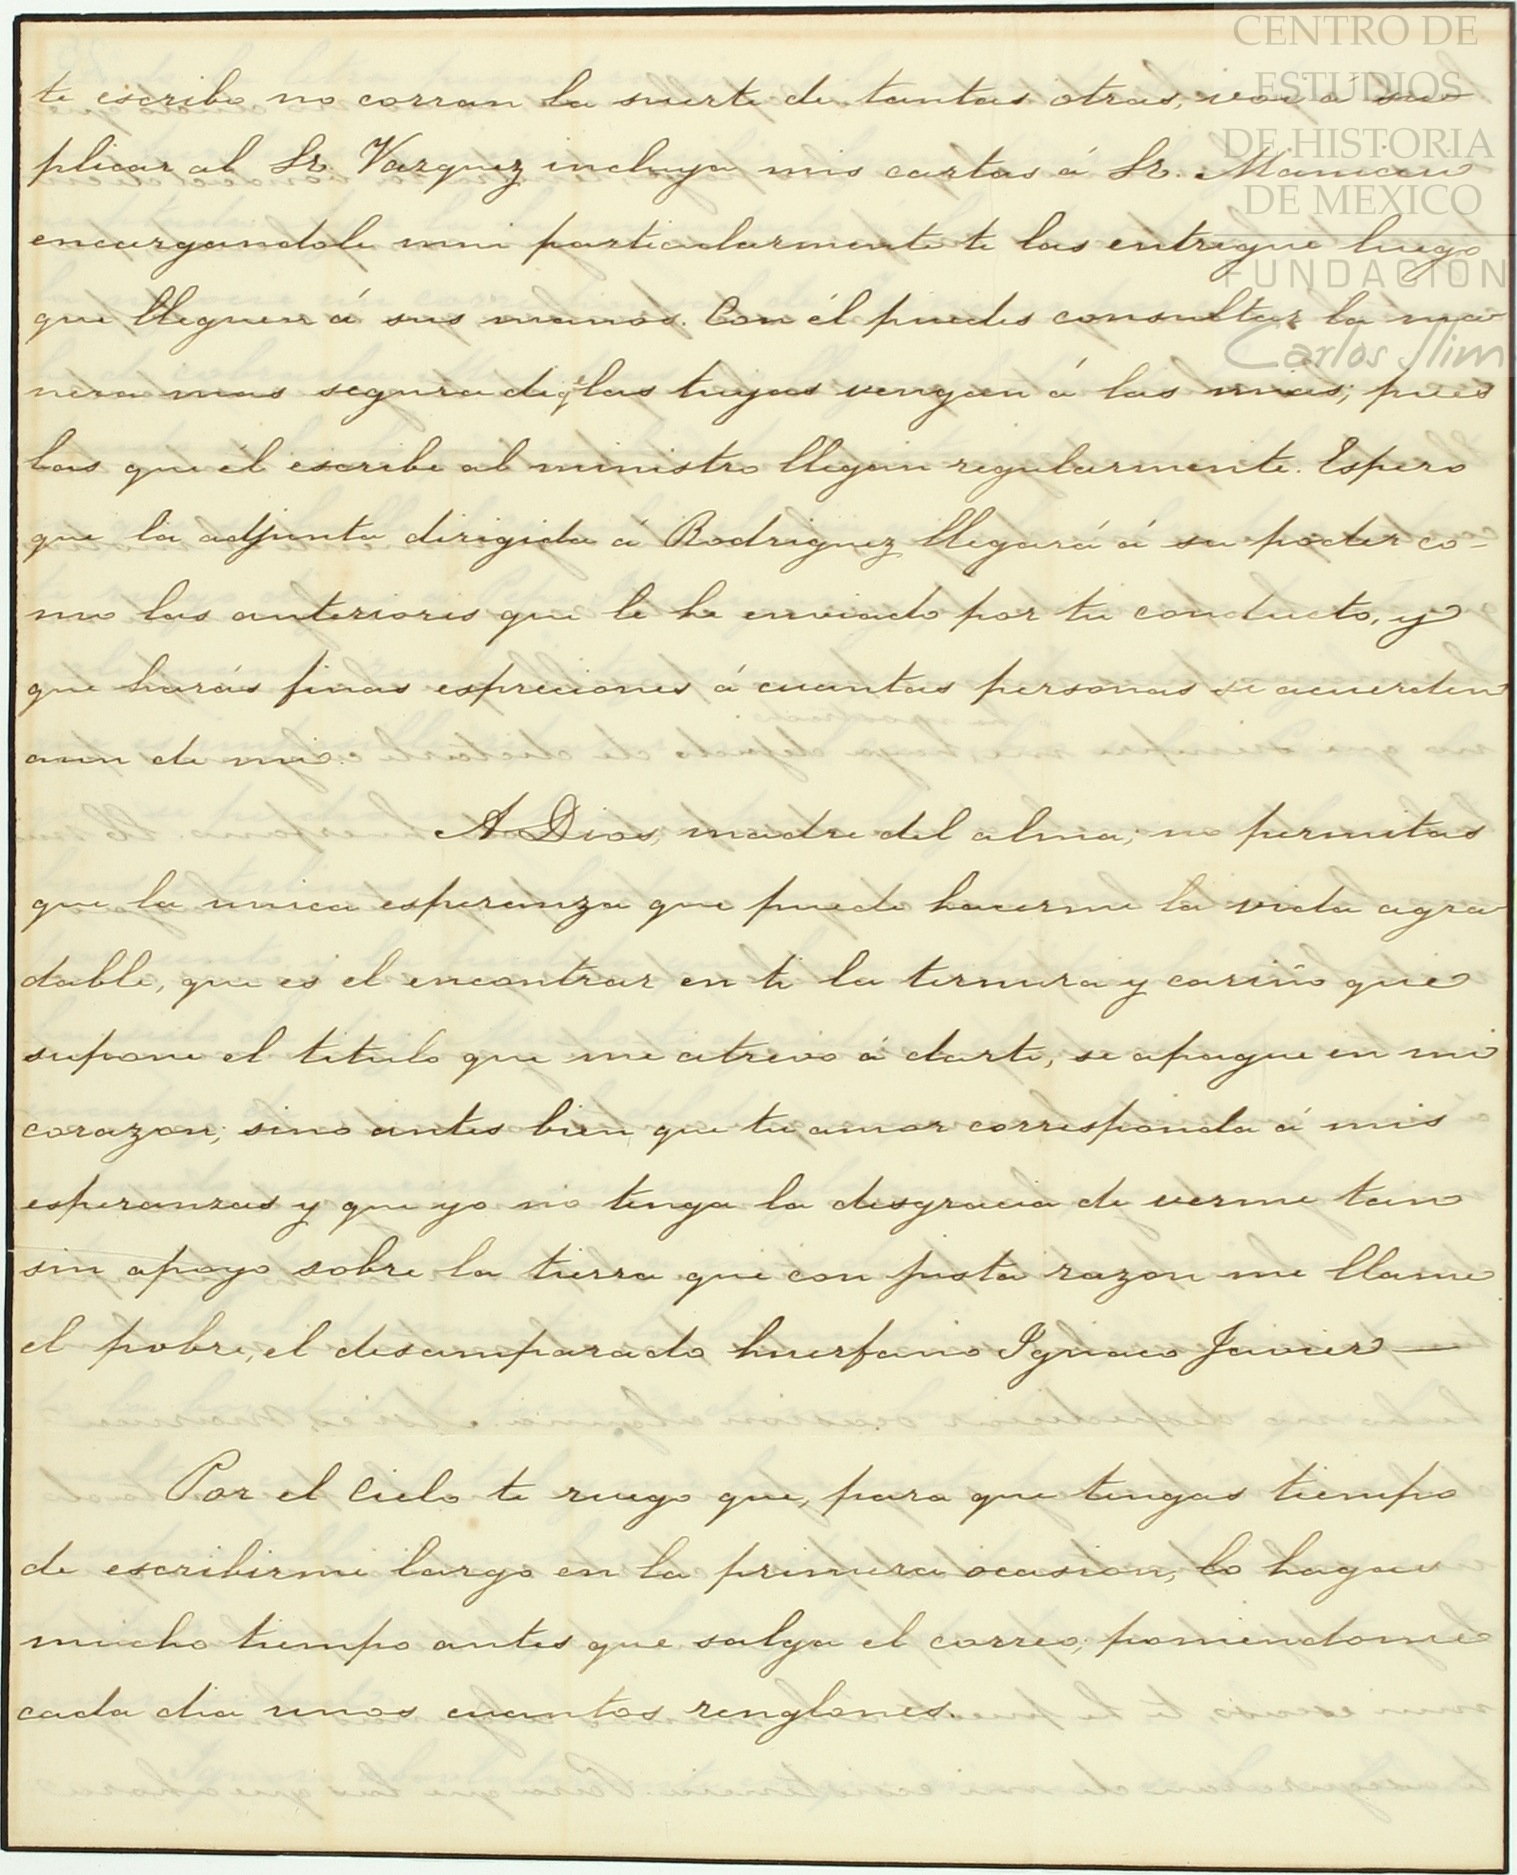 CENTRO DE
ESTUDIOS
DE HISTORIA
DE MEXICO
FUNDACIÓN
Carlos Slim
te escribo no corran la suerte de tantas otras, voi a su-
plicar al Sr. Vazquez incluya mis cartas á Sr.
encargandole mui particularmente te las entregue luego
que lleguen á sus manos. Con él puedes consultar la ma-
nera mas segura de q.e las tuyas vengan á las mias; pues
las que él escribe al ministro llegan regularmente. Espero
que la adjunta dirigida á Rodriguez llegará á su poder co-
mo las anteriores que le he enviado por tu conducto, y
que harás finas espreciones á cuantas personas se acuerden
aun de mi.
A Dios, madre del alma; no permitas
que la unica esperanza que puede hacerme la vida agra-
dable, que es el encontrar en ti la ternura y cariño que
supone el titulo que me atrevo á darte, se apague en mi
corazon; sino antes bien que tu amor corresponda á mis
esperanzas y que yo no tenga la desgracia de verme tan
sin apoyo sobre la tierra que con justa razon me llame
el pobre, el desamparado huerfano Ignacio Javier—
Por el Cielo te ruego que, para que tengas tiempo
de escribirme largo en la primera ocasion, lo hagas
mucho tiempo antes que salga el correo; poniendome
cada dia unos cuantos renglones.